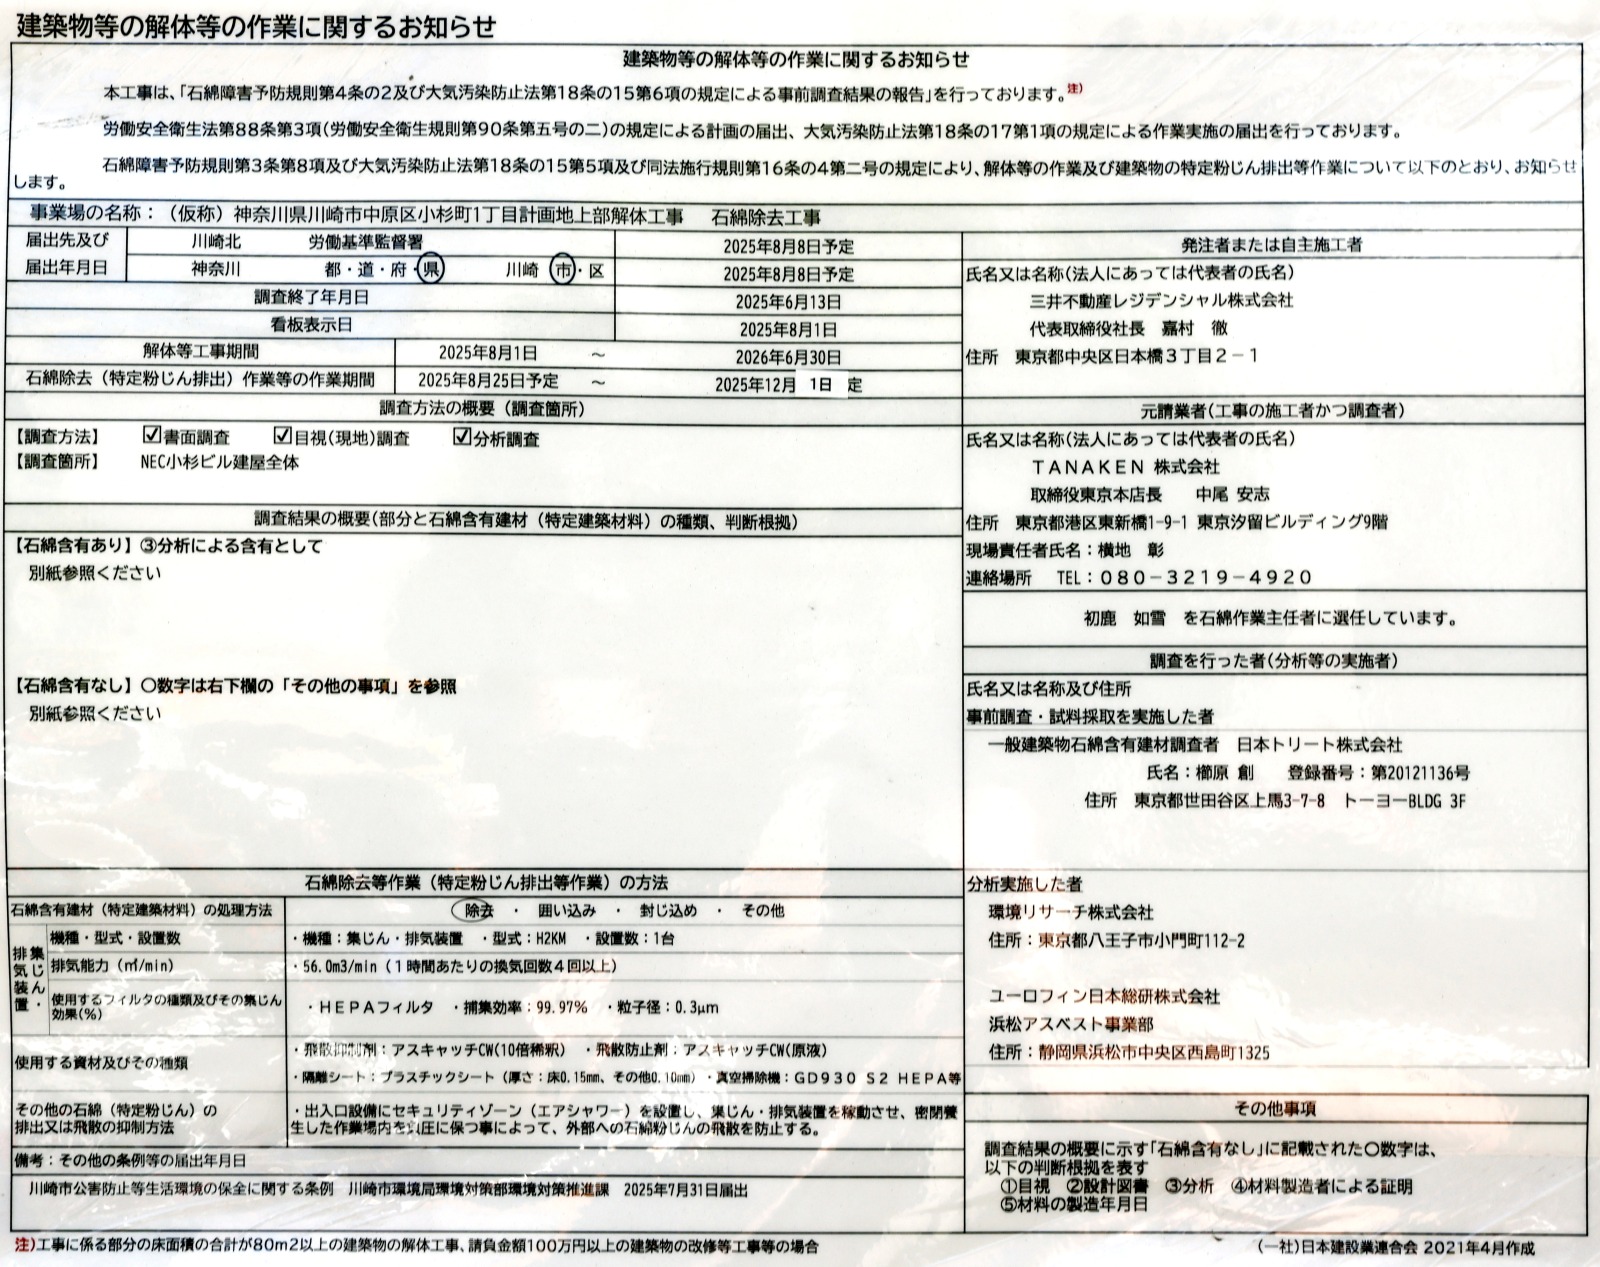 建築物等の解体等の作業に関するお知らせ
建築物等の解体等の作業に関するお知らせ
本工事は、「石綿障害予防規則第4条の2及び大気汚染防止法第18条の15第6項の規定による事前調査結果の報告」を行っております。注)
労働安全衛生法第88条第3項(労働安全衛生規則第90条第五号の二)の規定による計画の届出、大気汚染防止法第18条の17第1項の規定による作業実施の届出を行っております。
石綿障害予防規則第3条第8項及び大気汚染防止法第18条の15第5項及び同法施行規則第16条の4第二号の規定により、解体等の作業及び建築物の特定粉じん排出等作業について以下のとおり、お知らせ
します。
事業場の名称：（仮称）神奈川県川崎市中原区小杉町1丁目計画地上部解体工事 石綿除去工事
届出先及び 川崎北 労働基準監督署 2025年8月8日予定
届出年月日 神奈川 都・道・府・県 川崎 市・区 2025年8月8日予定
調査終了年月日 2025年6月13日
看板表示日 2025年8月1日
解体等工事期間 2025年8月1日 ～ 2026年6月30日
石綿除去（特定粉じん排出）作業等の作業期間 2025年8月25日予定 ～ 2025年12月 1日 定
調査方法の概要（調査箇所）
【調査方法】 ☑書面調査 ☑目視(現地)調査 ☑分析調査
【調査箇所】 NEC小杉ビル建屋全体
調査結果の概要(部分と石綿含有建材（特定建築材料）の種類、判断根拠)
【石綿含有あり】③分析による含有として
別紙参照ください
【石綿含有なし】〇数字は右下欄の「その他の事項」を参照
別紙参照ください
石綿除去等作業（特定粉じん排出等作業）の方法
石綿含有建材（特定建築材料）の処理方法 除去 ・ 囲い込み ・ 封じ込め ・ その他
集じん・排気装置
機種・型式・設置数 ・機種：集じん・排気装置 ・型式：H2KM ・設置数：1台
排気能力（㎥/min） ・56.0m3/min（１時間あたりの換気回数４回以上）
使用するフィルタの種類及びその集じん
効果(%)
・ＨＥＰＡフィルタ ・捕集効率：99.97% ・粒子径：0.3μm
使用する資材及びその種類
・飛散抑制剤：アスキャッチCW(10倍稀釈) ・飛散防止剤：アスキャッチCW(原液)
・隔離シート：プラスチックシート（厚さ：床0.15mm、その他0.10mm）・真空掃除機：ＧＤ９３０ Ｓ２ ＨＥＰＡ等
その他の石綿（特定粉じん）の
排出又は飛散の抑制方法
・出入口設備にセキュリティゾーン（エアシャワー）を設置し、集じん・排気装置を稼動させ、密閉養
生した作業場内を負圧に保つ事によって、外部への石綿粉じんの飛散を防止する。
備考：その他の条例等の届出年月日
川崎市公害防止等生活環境の保全に関する条例 川崎市環境局環境対策部環境対策推進課 2025年7月31日届出
発注者または自主施工者
氏名又は名称(法人にあっては代表者の氏名)
三井不動産レジデンシャル株式会社
代表取締役社長 嘉村 徹
住所 東京都中央区日本橋３丁目２－１
元請業者(工事の施工者かつ調査者)
氏名又は名称(法人にあっては代表者の氏名)
ＴＡＮＡＫＥＮ 株式会社
取締役東京本店長 中尾 安志
住所 東京都港区東新橋1-9-1 東京汐留ビルディング9階
現場責任者氏名：横地 彰
連絡場所 TEL：０８０－３２１９－４９２０
初鹿 如雪 を石綿作業主任者に選任しています。
調査を行った者(分析等の実施者)
氏名又は名称及び住所
事前調査・試料採取を実施した者
一般建築物石綿含有建材調査者 日本トリート株式会社
氏名：櫛原 創 登録番号：第20121136号
住所 東京都世田谷区上馬3-7-8 トーヨーBLDG 3F
分析実施した者
環境リサーチ株式会社
住所：東京都八王子市小門町112-2
ユーロフィン日本総研株式会社
浜松アスベスト事業部
住所：静岡県浜松市中央区西島町1325
その他事項
調査結果の概要に示す「石綿含有なし」に記載された〇数字は、
以下の判断根拠を表す
①目視 ②設計図書 ③分析 ④材料製造者による証明
⑤材料の製造年月日
注)工事に係る部分の床面積の合計が80m2以上の建築物の解体工事、請負金額100万円以上の建築物の改修等工事等の場合
(一社)日本建設業連合会 2021年4月作成